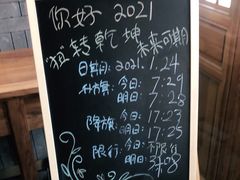 你好 2021
"扭"转乾坤 未来可期
日期：2021.1.24
升旗：今日：7:29
明日：7:28
降旗：今日：17:23
明日：17:25
限行：今日：不限行
明日：3和8